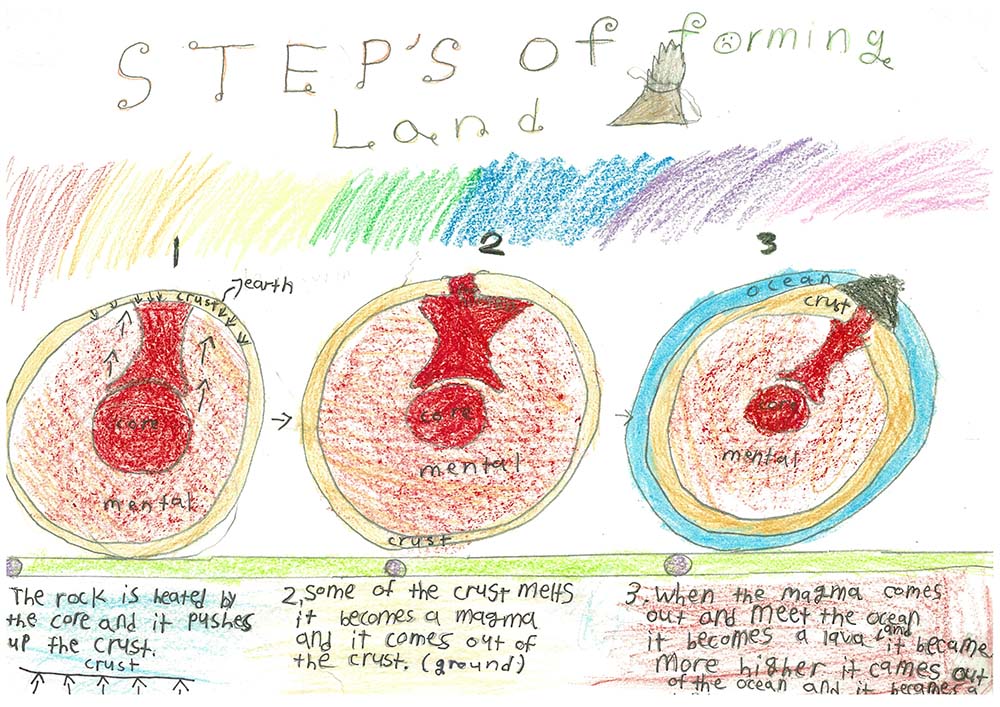 STEP'S of forming
Land
1
2
3
crust
earth
core
mental
core
mental
crust
ocean
crust
core
mental
The rock is heated by
the core and it pushes
up the crust.
crust
2, some of the crust melts
it becomes a magma
and it comes out of
the crust. (ground)
3. When the magma comes
out and meet the ocean
it becomes a lava land it became
more higher it cames out
of the ocean and it becomes a